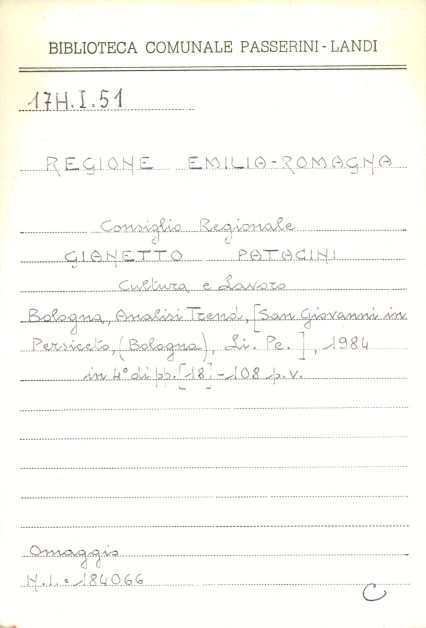 BIBLIOTECA COMUNALE PASSERINI-LANDI
17H.I.51
REGIONE EMILIA-ROMAGNA
Consiglio Regionale
GIANETTO PATACINI
Cultura e Lavoro
Bologna, Analisi Trend, [San Giovanni in
Persiceto, (Bologna), Li. Pe.], 1984
in 4° di pp. [18]-108 p.v.
Omaggio
N.I. = 184066
C